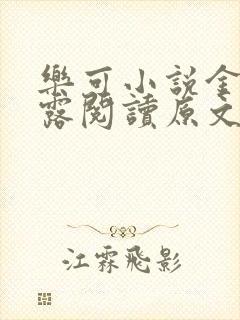 樂可小說金
露閱讀原文
江霖飛影